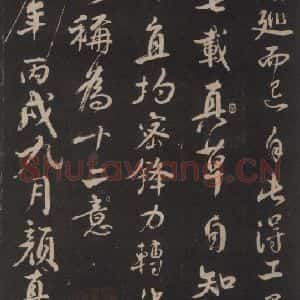 巡而已自此得工
載真草自知
直均密鋒力轉
稱為十二意
年丙戌九月顏真
Shufawang.CN